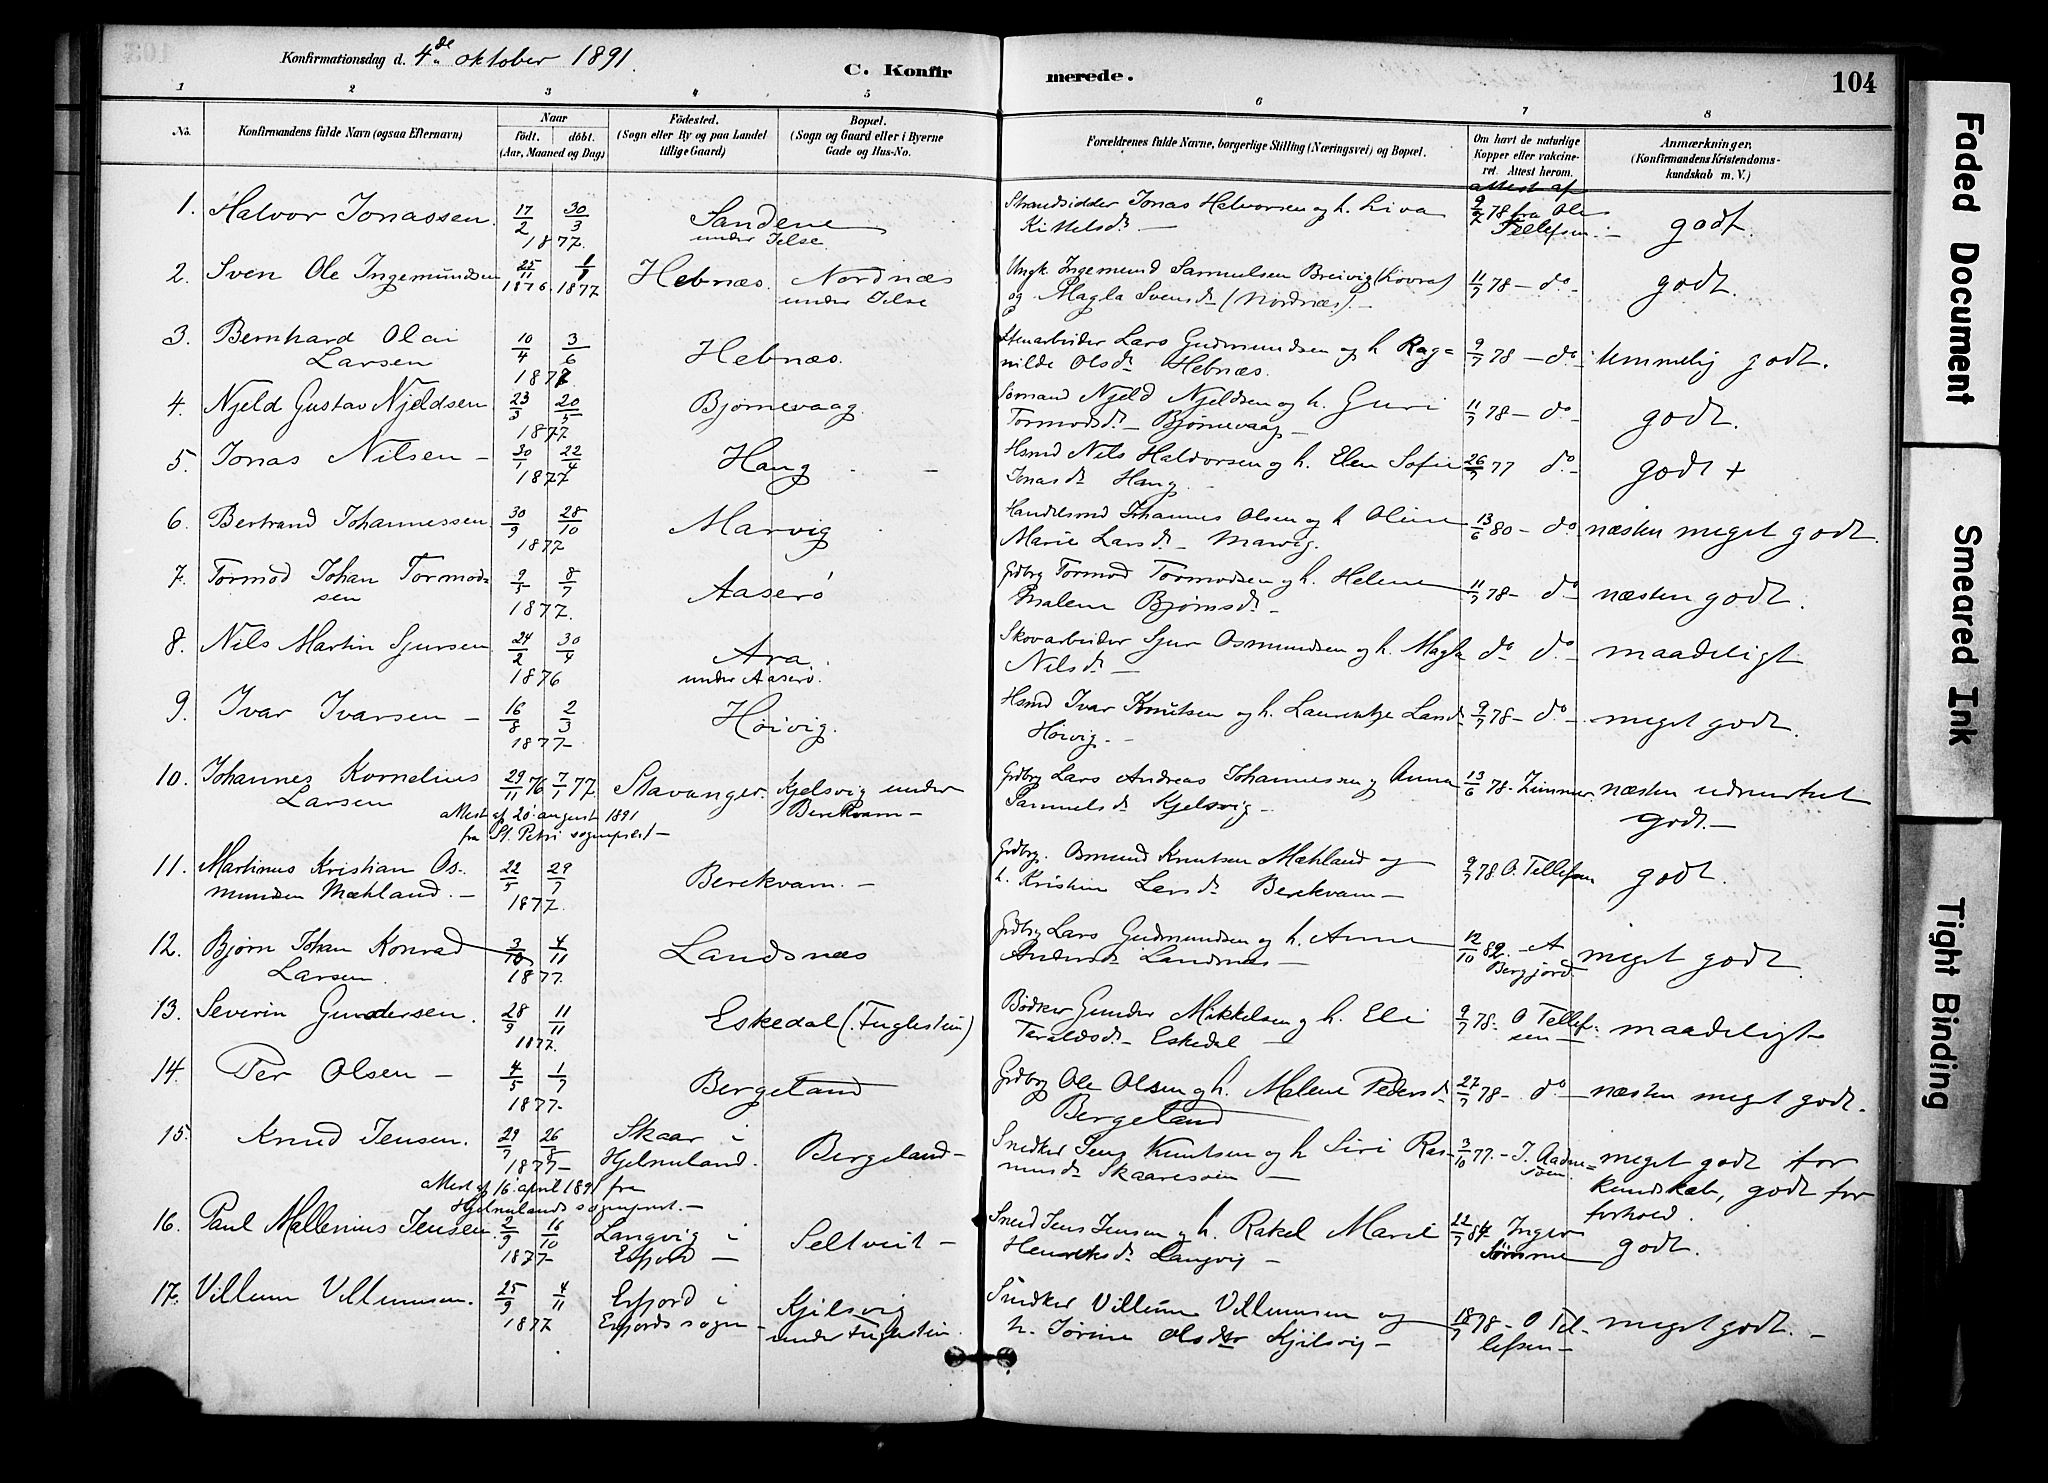 Konfirmationsdag d. 4de oktober 1891.
C. Konfirmerede.
104
1 2 3 4 5 6 7 8
No.
Konfirmandens fulde Navn (ogsaa Efternavn)
Naar
født. døbt.
(Aar, Maaned og Dag)
Fødested.
(Sogn eller By og paa Landet
tillige Gaard)
Bopæl.
(Sogn og Gaard eller i Byerne
Gade og Hus-No.
Forældrenes fulde Navne, borgerlige Stilling (Næringsvei) og Bopæl.
Om havt de naturlige
Kopper eller vakcine-
ret. Attest herom.
Anmærkninger,
(Konfirmandens Kristendoms-
kundskab m. V.)
1. Halvor Jonassen. 17/2 30/3 1877. Sandene under Jelse. Strandsidder Jonas Halvorsen og h. Liva Kittelsdr. — attest af 9/7 78 fra Ole Tellefsen. godt.
2. Sven Ole Ingemundsen 25/11 1876. 1/1 1877 Hebnæs. Nordnæs under Jelse Ungk. Ingemund Samuelsen Breivig og Magla Svensdr (Nordnæs). — 11/7 78 — do — godt.
3. Bernhard Olai Larsen 10/4 3/6 1877 Hebnæs. Stenarbeider Lars Gudmundsen og h Ragnilde Olsdr Hebnæs. 9/7 78 — do — temmelig godt.
4. Njeld Gustav Njeldsen 23/3 20/5 1877 Bjørnevaag. Sømand Njeld Njeldsen og h. Guri Tormodsdr — Bjørnevaag — 11/7 78 — do — godt.
5. Jonas Nilsen — 30/1 22/4 1877 Haug — Hsmd Nils Haldorsen og h. Elen Sofie Jonasdr Haug. 26/7 77 do — godt +
6. Bertrand Johannessen 30/9 28/10 1877 Marvig Handelsmd Johannes Olsen og h Oline Marie Larsdr — Marvig. 13/6 80 — do næsten meget godt.
7. Tormod Johan Tormodsen 9/5 8/7 1877. Aaserø Grdbrg Tormod Tormodsen og h. Helene Malene Bjørnsdr — 11/7 78 — do — næsten godt.
8. Nils Martin Sjursen 24/2 30/4 1876 Ara. under Aaserø. Skovarbeider Sjur Osmundsen og h. Magla Nilsdr — do do — maadeligt
9. Ivar Ivarsen — 16/8 2/3 1877 — Høivig. Hsmd Ivar Knutsen og h. Laurentze Larsd. Høivig. — 9/7 78 — do — meget godt.
10. Johannes Kornelius Larsen 29/11 76 7/1 77. Stavanger. Kjelsvig under Berekvam — Grdbrg Lars Andreas Johannessen og Anna Samuelsdr Kjelsvig — 13/6 78 — Zimmer. næsten udmerket godt. —
Attest af 20. august 1891
fra St. Petri sogneprest —
11. Martinus Kristian Osmundsen Mæhland. — 22/5 29/7 1877. Berekvam. — Grdbrg. Osmund Knutsen Mæhland og h. Kristine Larsdr Berekvam — 9/7 78. O. Tellefsen godt.
12. Bjørn Johan Konrad Larsen. 3/10 4/11 1877. Landsnæs Grdbrg Lars Gudmundsen og h. Anne Andersdr Landsnæs — 12/10 82. — A Bergfjord. meget godt.
13. Severin Gundersen. 28/9 11/11 1877. Eskedal (Fuglestein) Bødker Gunder Mikkelsen og h. Eli Taraldsdr — Eskedal — 9/7 78 — O Tellefsen — maadeligt
14. Per Olsen — 4/5 1/7 1877 — Bergeland Grdbrg Ole Olsen og h. Malene Pedersdr Bergeland 27/7 78 — do — næsten meget godt.
15. Knud Jensen. 29/7 26/8 1877 — Skaar i Hjelmeland. Bergeland — Snedker Jens Knutsen og h Siri Rasmusdr Skaaresven — 3/10 77. — J. Aadnesen. meget godt for kundskab, godt for forhold.
Attest af 16. april 1891 fra
Hjelmelands sogneprest. —
16. Paul Mallenius Jensen. 2/9 16/10 1877 — Langvig i Erfjord — Seltveit — Smed Jens Jensen og h. Rakel Marie Henriksdr Langvig — 22/7 84 Inger Sømme godt.
17. Villum Villumsen. 25/9 4/11 1877 Erfjord i Erfjords sogn — Kjilsvig under Fuglestein. Snedker Villum Villumsen og h. Jorine Olsdtr Kjilsvig — 18/7 78 — O Tellefsen — meget godt. —
Faded Document
Smeared Ink
Tight Binding